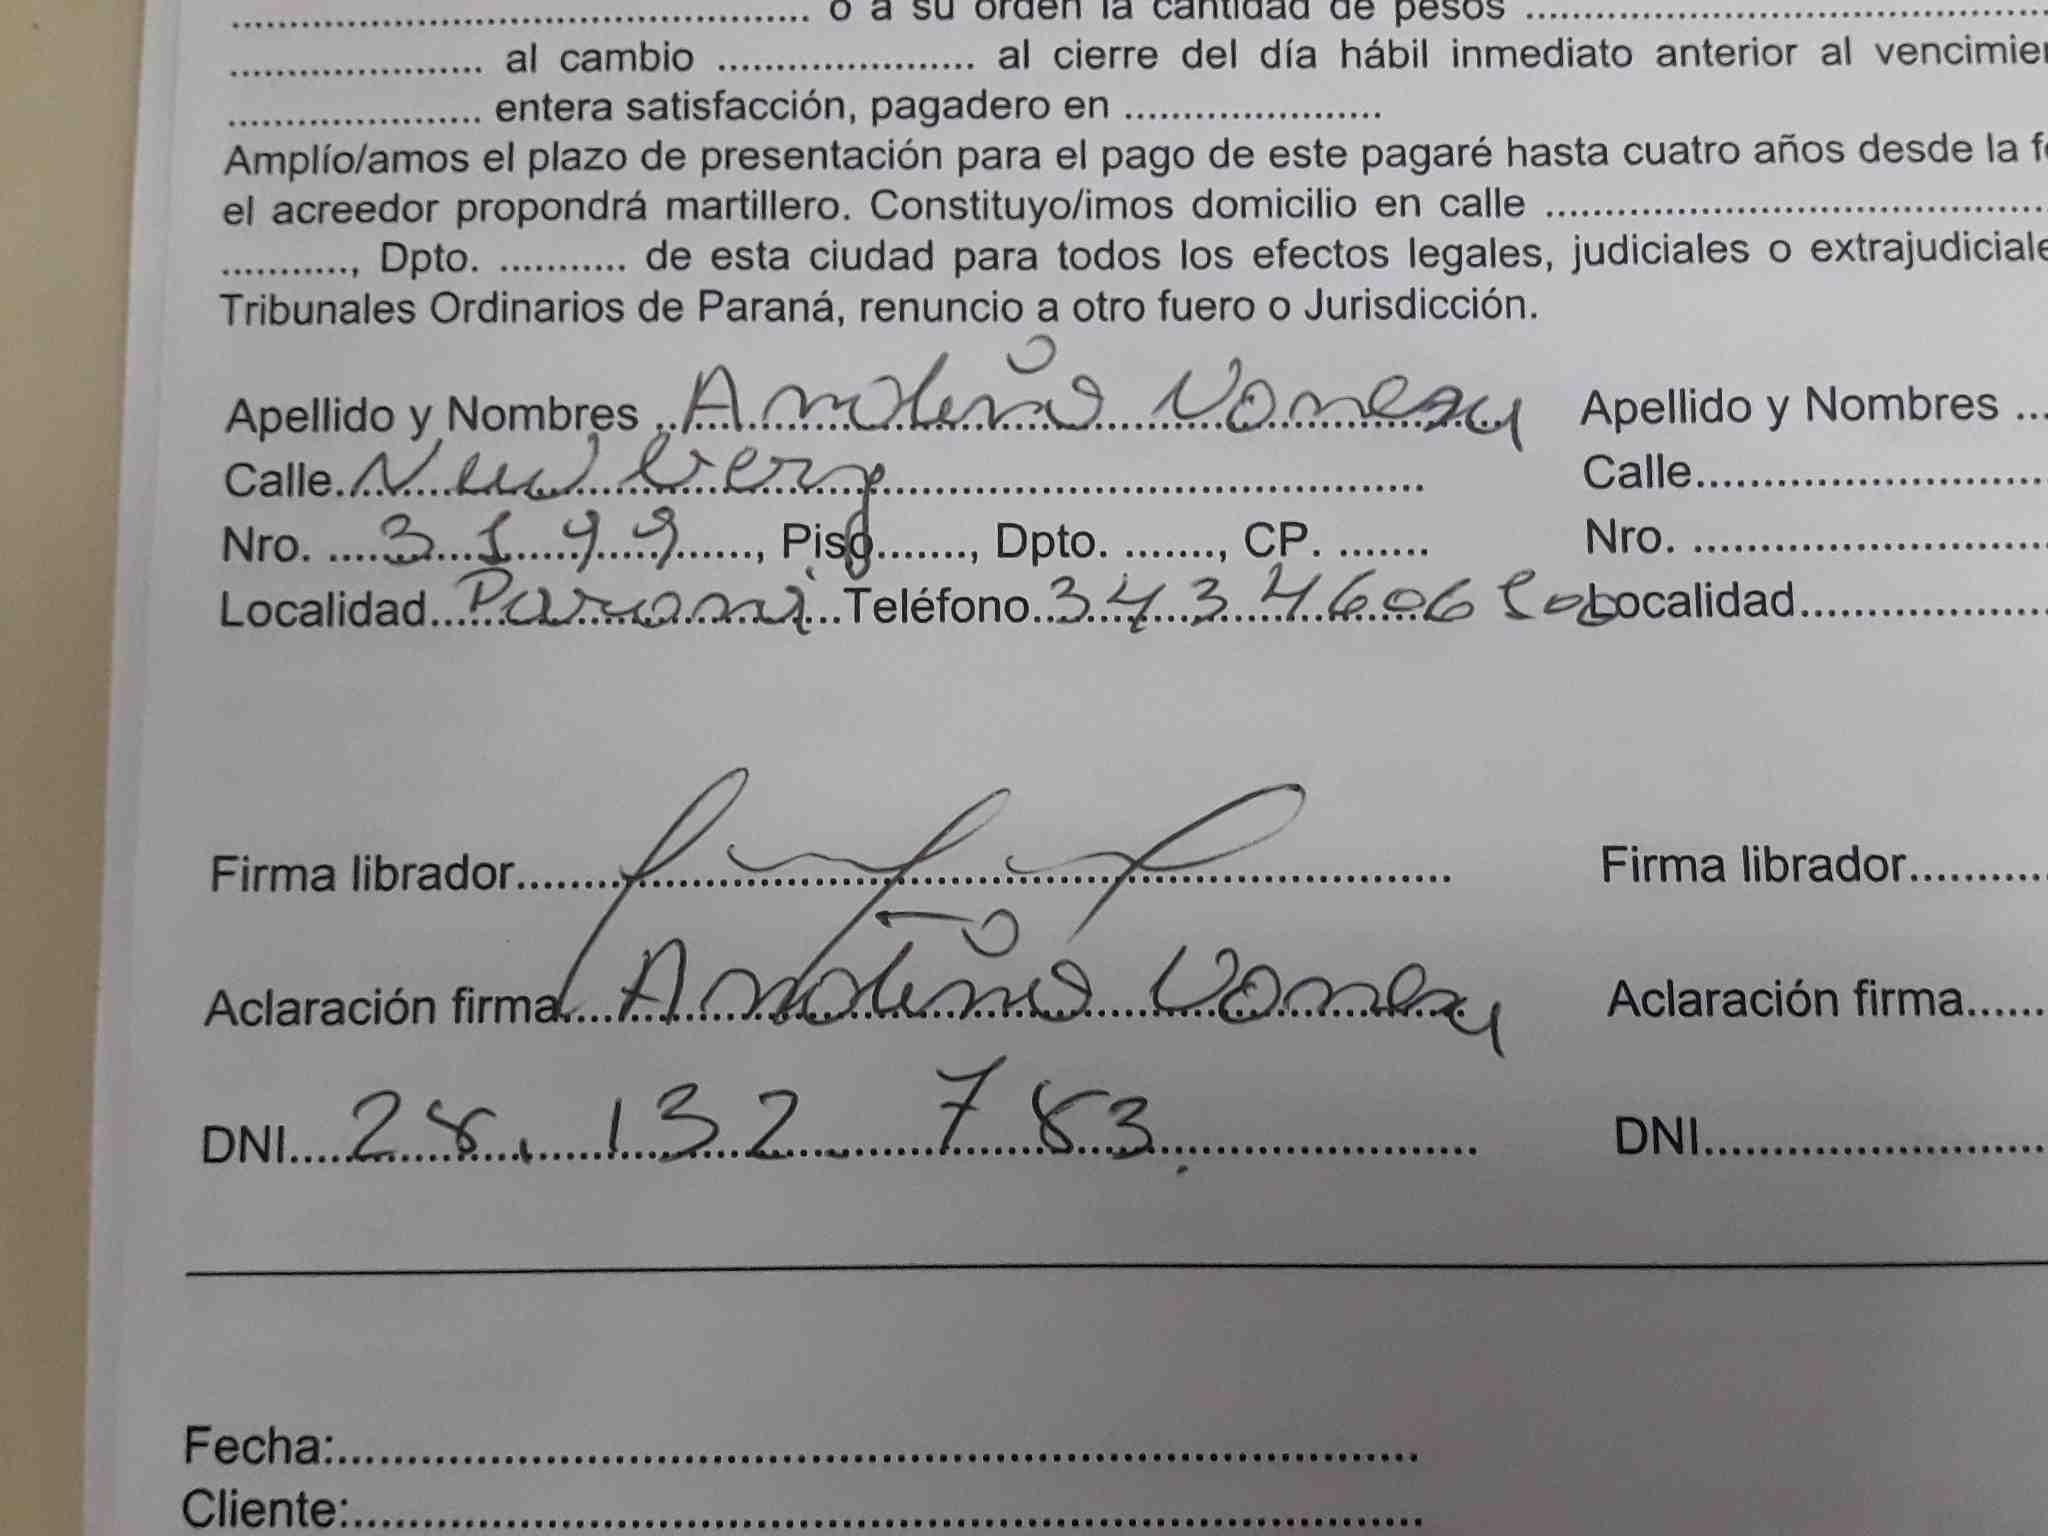 .................................................. o a su orden la cantidad de pesos ..................................................
...................... al cambio ...................... al cierre del día hábil inmediato anterior al vencimien
...................... entera satisfacción, pagadero en ......................
Amplío/amos el plazo de presentación para el pago de este pagaré hasta cuatro años desde la fe
el acreedor propondrá martillero. Constituyo/imos domicilio en calle ..................................................
..........., Dpto. ........... de esta ciudad para todos los efectos legales, judiciales o extrajudiciale
Tribunales Ordinarios de Paraná, renuncio a otro fuero o Jurisdicción.
Apellido y Nombres .. Vanesa Apellido y Nombres ...
Calle. Newbery Calle..............................
Nro. .... 3199 ......, Piso ......., Dpto. ......., CP. ....... Nro. ..............................
Localidad.. Paraná ..Teléfono.. 343 4606 Localidad......................
Firma librador.................................................. Firma librador...........
Aclaración firma.... Vanesa Aclaración firma......
DNI.... 28.132.783. DNI..............................
Fecha:..................................................
Cliente:..................................................